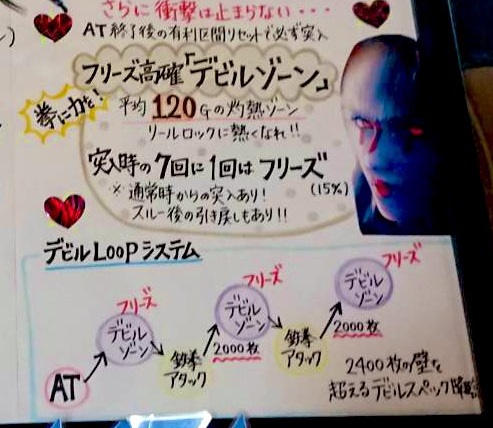 さらに衝撃は止まらない・・・
AT終了後の有利区間リセットで必ず突入
フリーズ高確「デビルゾーン」
拳に力を!
平均120Gの灼熱ゾーン
リールロックに熱くなれ!!
突入時の7回に1回はフリーズ
(15%)
※通常時からの突入あり!
スルー後の引き戻しもあり!!
デビルLOOPシステム
フリーズ
フリーズ
フリーズ
デビルゾーン
デビルゾーン
デビルゾーン
2000枚
2000枚
鉄拳アタック
鉄拳アタック
AT
2400枚の壁を
超えるデビルスペック